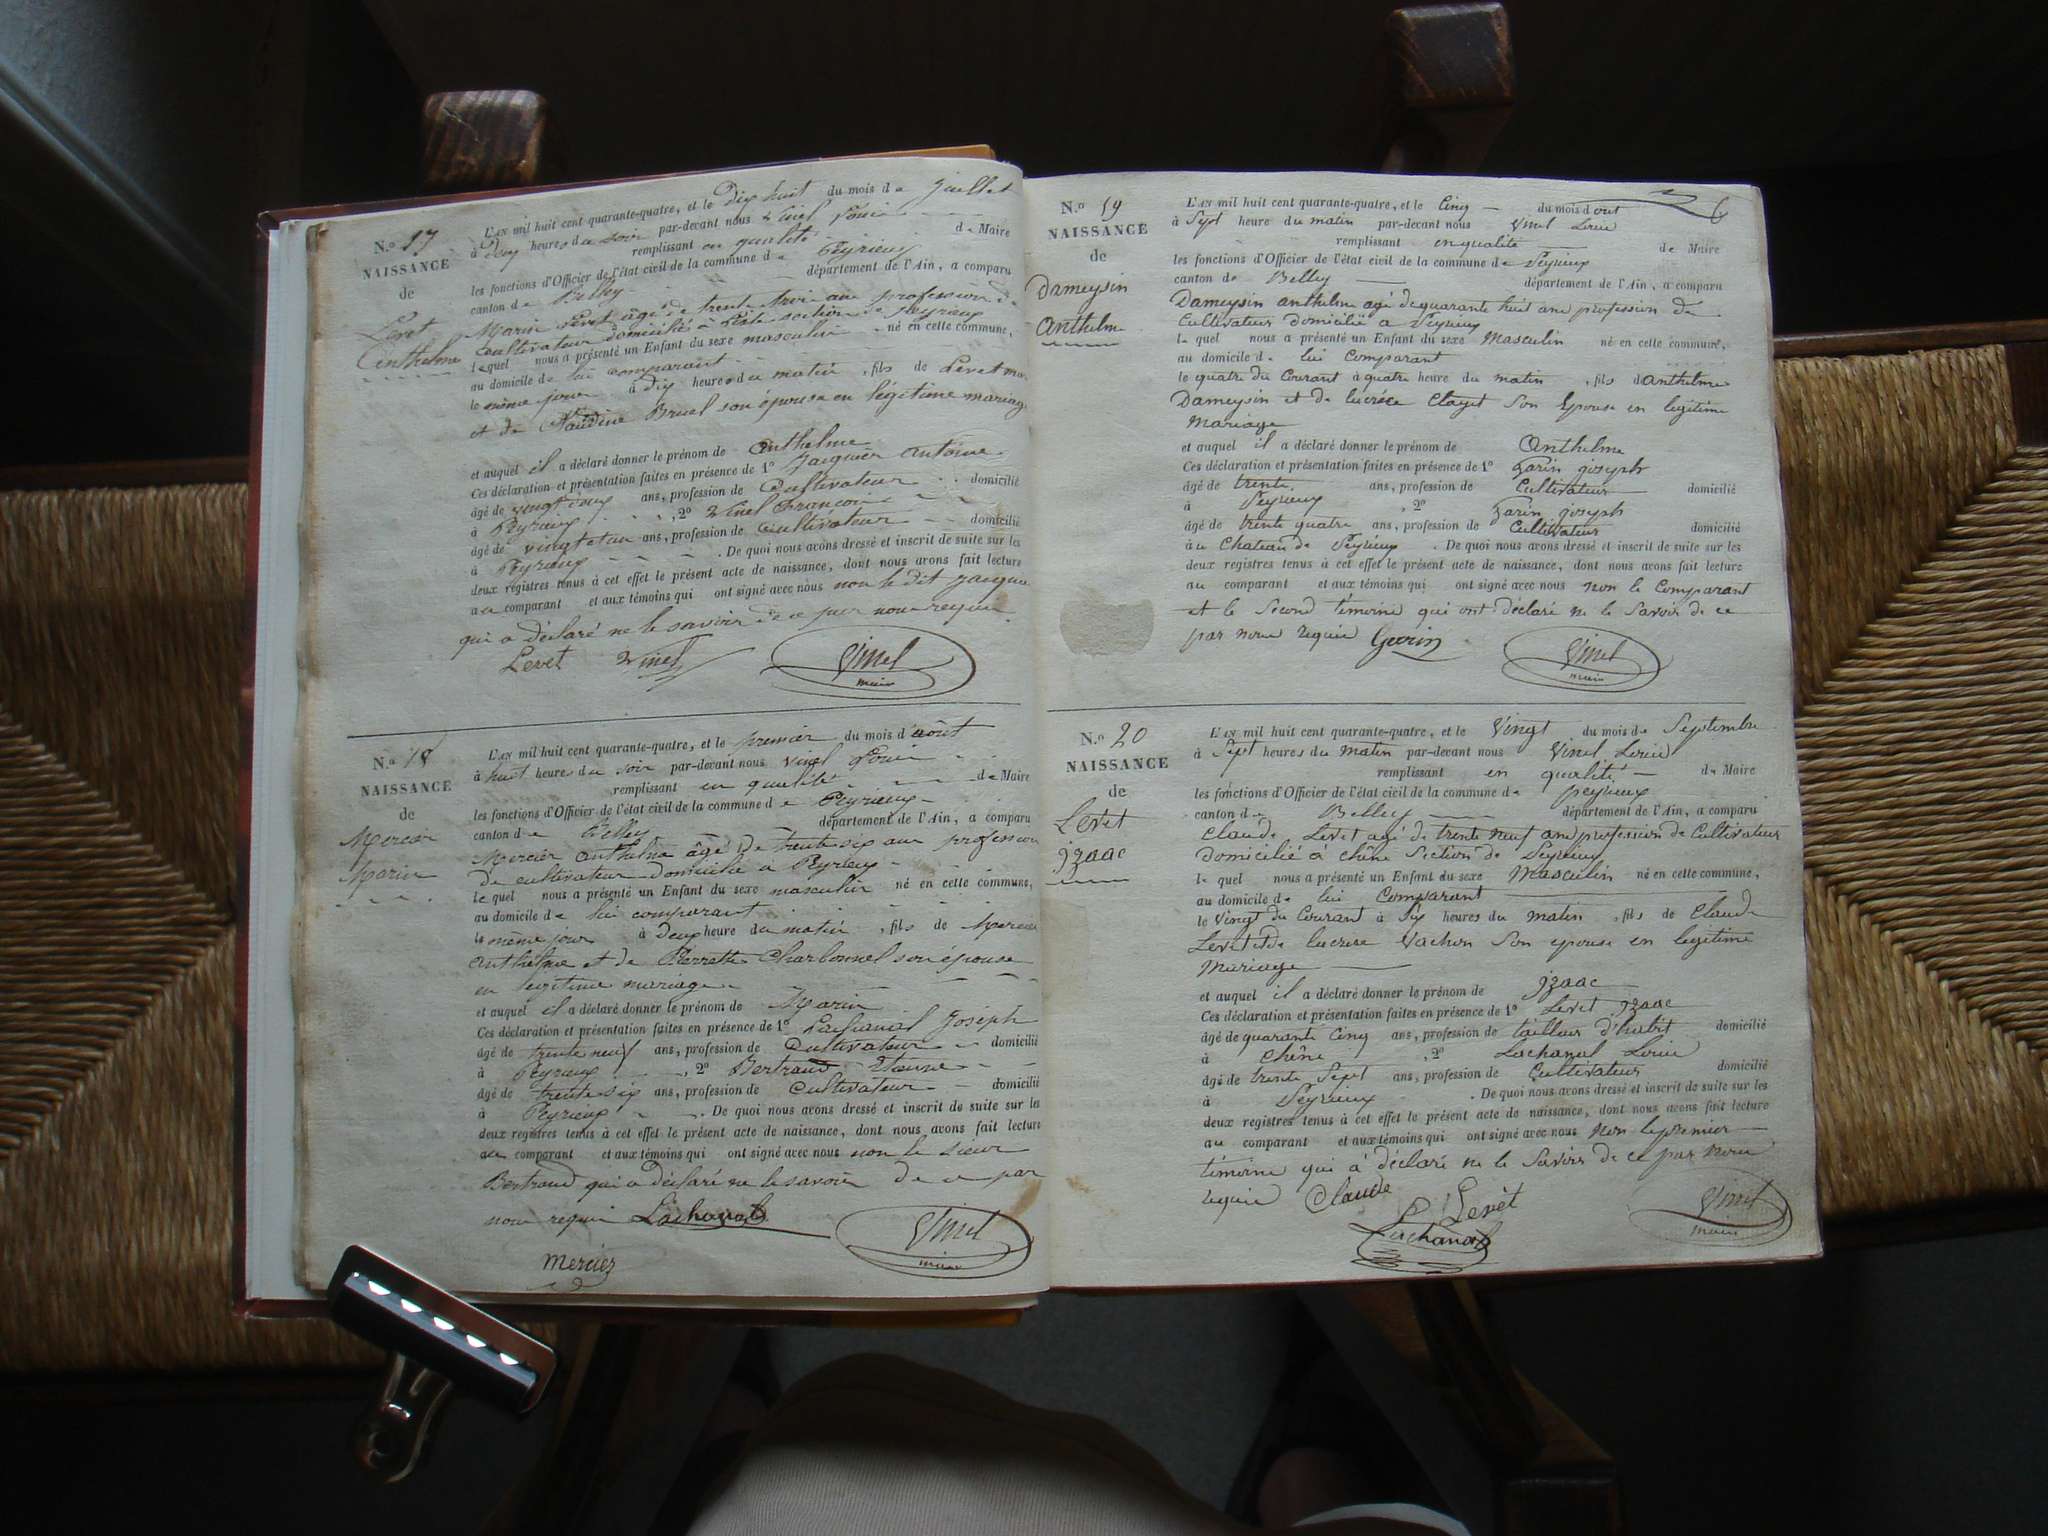 N.o 17
NAISSANCE
de
Levet
Anthelme
L'AN mil huit cent quarante-quatre, et le Dix huit du mois de Juillet
à Dix heures du soir par-devant nous Vinel Louis
remplissant en qualité de Maire
les fonctions d'Officier de l'état civil de la commune de Peyrieux
canton de Belley département de l'Ain, a comparu
Marin Levet âgé de trente trois ans profession de
cultivateur domicilié à section de Peyrieux
lequel nous a présenté un Enfant du sexe masculin né en cette commune,
au domicile de lui comparant
le même jour à dix heures du matin, fils de Levet
et de Claudine Bruel son épouse en légitime mariage
et auquel il a déclaré donner le prénom de Anthelme
Ces déclaration et présentation faites en présence de 1o Jacquier Antoine
âgé de ans, profession de Cultivateur domicilié
à Peyrieux, 2o Vinel François
âgé de vingt et un ans, profession de Cultivateur domicilié
à Peyrieux. De quoi nous avons dressé et inscrit de suite sur les
deux registres tenus à cet effet le présent acte de naissance, dont nous avons fait lecture
au comparant et aux témoins qui ont signé avec nous non le dit
qui a déclaré ne le savoir de ce par nous requis
Levet Vinel Vinel
maire
N.o 18
NAISSANCE
de
Mercier
Marin
L'AN mil huit cent quarante-quatre, et le premier du mois d'août
à huit heures du soir par-devant nous Vinel Louis
remplissant en qualité de Maire
les fonctions d'Officier de l'état civil de la commune de Peyrieux
canton de Belley département de l'Ain, a comparu
Mercier Anthelme âgé de trente six ans profession
de cultivateur domicilié à Peyrieux
lequel nous a présenté un Enfant du sexe masculin né en cette commune,
au domicile de lui comparant
le même jour à deux heure du matin, fils de Mercier
Anthelme et de Pierrette Charbonnel son épouse
en légitime mariage
et auquel il a déclaré donner le prénom de Marin
Ces déclaration et présentation faites en présence de 1o Lachanal Joseph
âgé de trente neuf ans, profession de Cultivateur domicilié
à Peyrieux, 2o Bertrand
âgé de trente six ans, profession de Cultivateur domicilié
à Peyrieux. De quoi nous avons dressé et inscrit de suite sur les
deux registres tenus à cet effet le présent acte de naissance, dont nous avons fait lecture
au comparant et aux témoins qui ont signé avec nous non le sieur
Bertrand qui a déclaré ne le savoir de ce par
nous requis Lachanal Vinel
maire
Mercier
6
N.o 19
NAISSANCE
de
Dameysin
Anthelme
L'AN mil huit cent quarante-quatre, et le Cinq du mois d'out
à Sept heure du matin par-devant nous Vinel Louis
remplissant en qualité de Maire
les fonctions d'Officier de l'état civil de la commune de Peyrieux
canton de Belley département de l'Ain, a comparu
Dameysin anthelme agé de quarante huit ans profession de
Cultivateur domicilié a Peyrieux
lequel nous a présenté un Enfant du sexe Masculin né en cette commune,
au domicile de lui Comparant
le quatre du Courant à quatre heure du matin, fils d'anthelme
Dameysin et de lucrèce Clayet Son Epouse en légitime
Mariage
et auquel il a déclaré donner le prénom de Anthelme
Ces déclaration et présentation faites en présence de 1o joseph
âgé de trente ans, profession de Cultivateur domicilié
à Peyrieux, 2o joseph
âgé de trente quatre ans, profession de Cultivateur domicilié
au Chateau de Peyrieux. De quoi nous avons dressé et inscrit de suite sur les
deux registres tenus à cet effet le présent acte de naissance, dont nous avons fait lecture
au comparant et aux témoins qui ont signé avec nous non le Comparant
et le Second témoins qui ont déclaré ne le Savoir de ce
par nous requis Vinel
maire
N.o 20
NAISSANCE
de
Levet
izaac
L'AN mil huit cent quarante-quatre, et le Vingt du mois de Septembre
à Sept heures du matin par-devant nous Vinel Louis
remplissant en qualité de Maire
les fonctions d'Officier de l'état civil de la commune de peyrieux
canton de Belley département de l'Ain, a comparu
Claude Levet agé de trente neuf ans profession de Cultivateur
domicilié à chêne Section de Peyrieux
lequel nous a présenté un Enfant du sexe Masculin né en cette commune,
au domicile de lui Comparant
le Vingt du Courant à Six heures du matin, fils de Claude
Levet et de lucrese Vachon Son epouse en legitime
Mariage
et auquel il a déclaré donner le prénom de izaac
Ces déclaration et présentation faites en présence de 1o Levet izaac
âgé de quarante Cinq ans, profession de tailleur d'habit domicilié
à Chêne, 2o Lachanal Louis
âgé de trente Sept ans, profession de Cultivateur domicilié
à Peyrieux. De quoi nous avons dressé et inscrit de suite sur les
deux registres tenus à cet effet le présent acte de naissance, dont nous avons fait lecture
au comparant et aux témoins qui ont signé avec nous non le premier
témoins qui à déclaré ne le Savoir de ce par nous
requis Claude Levet Vinel
maire
Lachanal